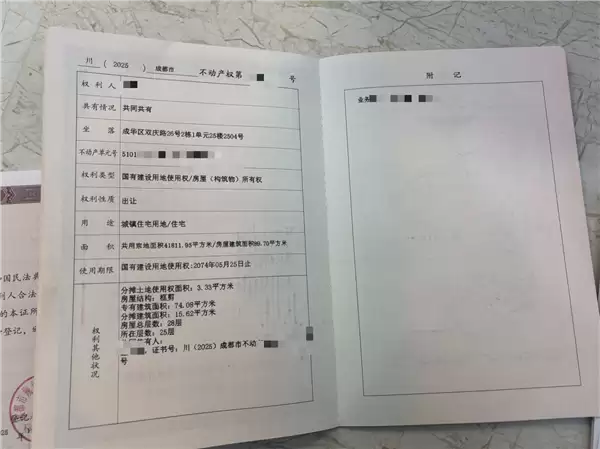 川（2025）成都市 不动产权第 号
权利人
共有情况 共同共有
坐落 成华区双庆路26号2栋1单元25楼2504号
不动产单元号 5101
权利类型 国有建设用地使用权/房屋（构筑物）所有权
权利性质 出让
用途 城镇住宅用地/住宅
面积 共用宗地面积41811.95平方米/房屋建筑面积89.70平方米
使用期限 国有建设用地使用权:2074年05月25日止
权利其他状况
分摊土地使用权面积：3.33平方米
房屋结构：框剪
专有建筑面积：74.08平方米
分摊建筑面积：15.62平方米
房屋总层数：28层
所在层数：25层
有人：
，证书号：川（2025）成都市不动
号
附记
业务
国民法典
利人合法
的本证所
登记，
登记
25 年